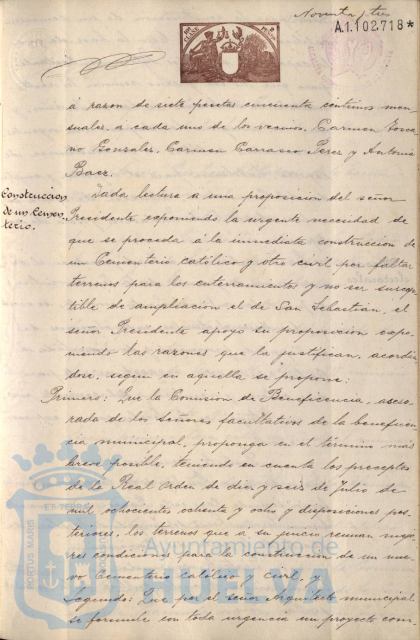 Noventa y tres
A.1.102.718*
á razon de siete pesetas cincuenta céntimos men-
suales, á cada uno de los vecinos, Carmen Tosca-
no Gonzalez, Carmen Carrasco Perez y Antonia
Baez.
Construccion
de un Cemen-
terio.
Dada lectura á una proposicion del señor
Presidente exponiendo la urgente necesidad de
que se proceda á la inmediata construccion de
un Cementerio católico y otro civil por faltar
terrenos para los enterramientos y no ser suscep-
tible de ampliacion el de San Sebastian, el
señor Presidente apoyó su proposicion expo-
niendo las razones que la justifican, acordán-
dose, segun en aquella se propone:
Primero: Que la Comision de Beneficencia, aseso-
rada de los señores facultativos de la beneficen-
cia municipal, proponga en el término más
breve posible, teniendo en cuenta los preceptos
de la Real orden de diez y seis de Julio de
mil ochocientos ochenta y ocho y disposiciones pos-
teriores, los terrenos que á su juicio reunan mejo-
res condiciones para la construccion de un nue-
vo Cementerio católico y civil, y
Segundo: Que por el señor Arquitecto municipal
se formule con toda urgencia un proyecto com-
PORTUS MARIS
ET TERRAE
Ayuntamiento de
HUELVA